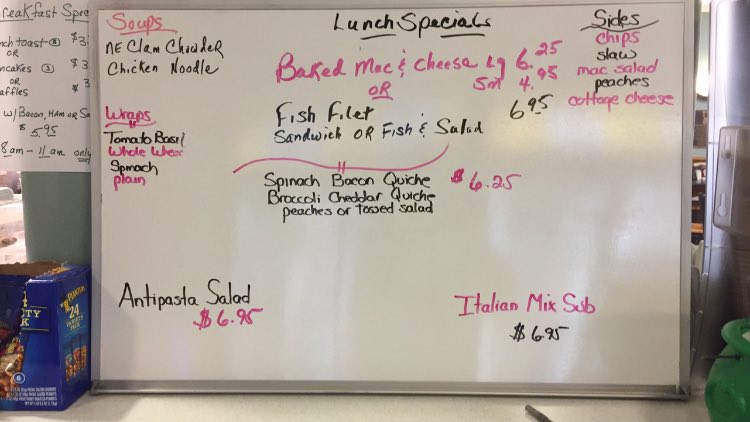 Breakfast Spec
nch toast ③ $3.
OR
ncakes ③ $3
OR
affles $3
w/Bacon, Ham or Sa
$5.95
8am - 11am only
Soups
NE Clam Chowder
Chicken Noodle
Wraps
Tomato Basil
Whole Wheat
Spinach
plain
Lunch Specials
Baked Mac & Cheese Lg 6.25
OR Sm 4.95
Fish Filet 6.95
Sandwich OR Fish & Salad
Spinach Bacon Quiche $6.25
Broccoli Cheddar Quiche
peaches or tossed salad
Sides
chips
slaw
mac salad
peaches
cottage cheese
Antipasta Salad
$6.95
Italian Mix Sub
$6.95
PLANTERS
24
VARIETY
PACK
TY
K
6